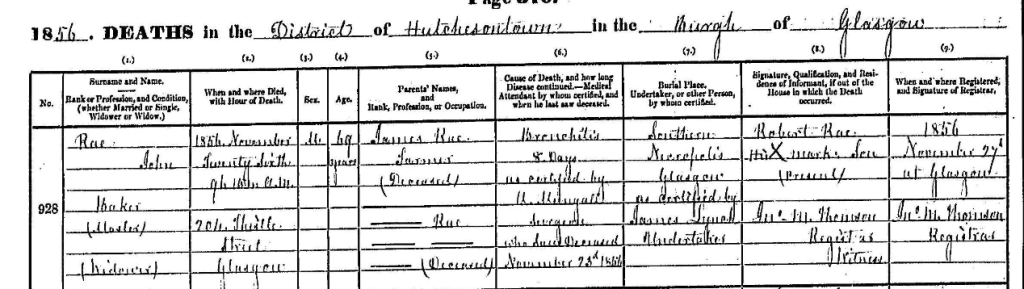 1856. DEATHS in the District of Hutchesontown in the Burgh of Glasgow
(1.) (2.) (3.) (4.) (5.) (6.) (7.) (8.) (9.)
No.
Surname and Name.
Rank or Profession, and Condition,
(whether Married or Single,
Widower or Widow.)
When and where Died,
with Hour of Death.
Sex.
Age.
Parents' Names,
and
Rank, Profession, or Occupation.
Cause of Death, and how long
Disease continued.—Medical
Attendant by whom certified, and
when he last saw deceased.
Burial Place.
Undertaker, or other Person,
by whom certified.
Signature, Qualification, and Resi-
dence of Informant, if out of the
House in which the Death
occurred.
When and where Registered,
and Signature of Registrar.
928
Rae
John
Baker
(Master)
(Widower)
1856 November
Twenty Sixth
9h A.M.
204 Thistle
Street
Glasgow
M.
69
years
James Rae
Farmer
(Deceased)
Rae
(Deceased)
Bronchitis
8 Days
as certified by
Surgeon
who saw Deceased
November 25d 1856
Southern
Necropolis
Glasgow
as certified by
James Lynch
Undertaker
Robert Rae
His X mark Son
(Present)
Jno. M. Thomson
Registrar
Witness
1856
November 27d
at Glasgow
Jno. M. Thomson
Registrar